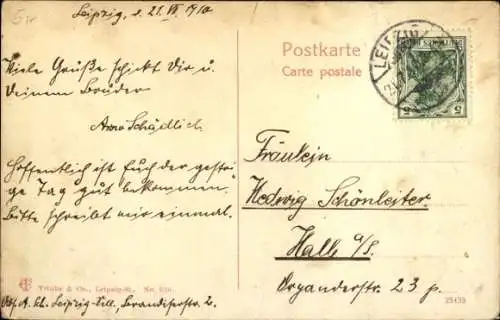 Leipzig, d. 21. VI 1910
Viele Grüße schickt Dir u.
Deinem Bruder
Arno Schädlich
Hoffentlich ist Euch der gestri-
ge Tag gut bekommen.
Bitte schreibt mir einmal.
Trinks & Co., Leipzig
Abs. A. Sch. Leipzig
Postkarte
Carte postale
LEIPZIG
5 5
Fräulein
Hedwig Schönleiter
Halle a/S.
23 p.